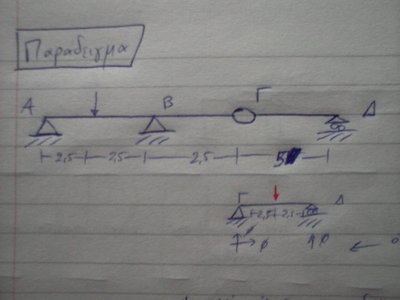 Παράδειγμα
Α Β Γ Δ
2,5 2,5 2,5 5
Γ Δ
2,5 2,5